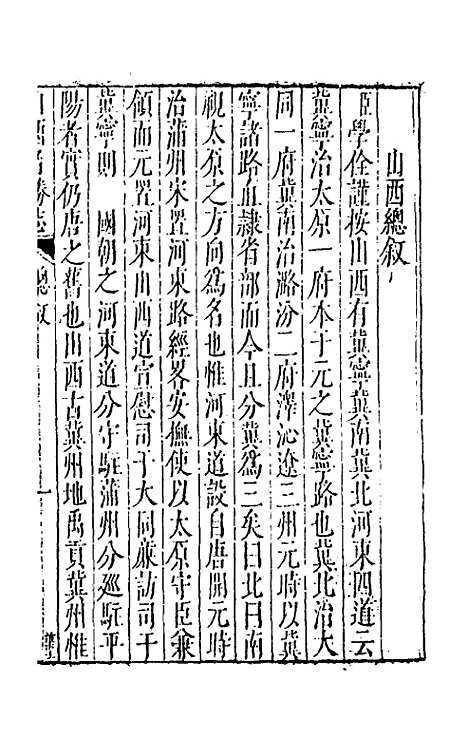 山西總叙
臣學佺謹按山西有冀寧冀南冀北河東四道云
冀寧治太原一府本于元之冀寧路也冀北治大
同一府冀南治潞汾二府澤沁遼三州元時以冀
寧諸路並隸省部而今且分冀爲三矣曰北曰南
視太原之方向爲名也惟河東道設自唐開元時
治蒲州宋置河東路經畧安撫使以太原守臣兼
領而元置河東山西道宣慰司于大同廉訪司于
冀寧則　國朝之河東道分守駐蒲州分巡駐平
陽者實仍唐之舊也山西古冀州地禹貢冀州惟
山西名勝志　總叙　一